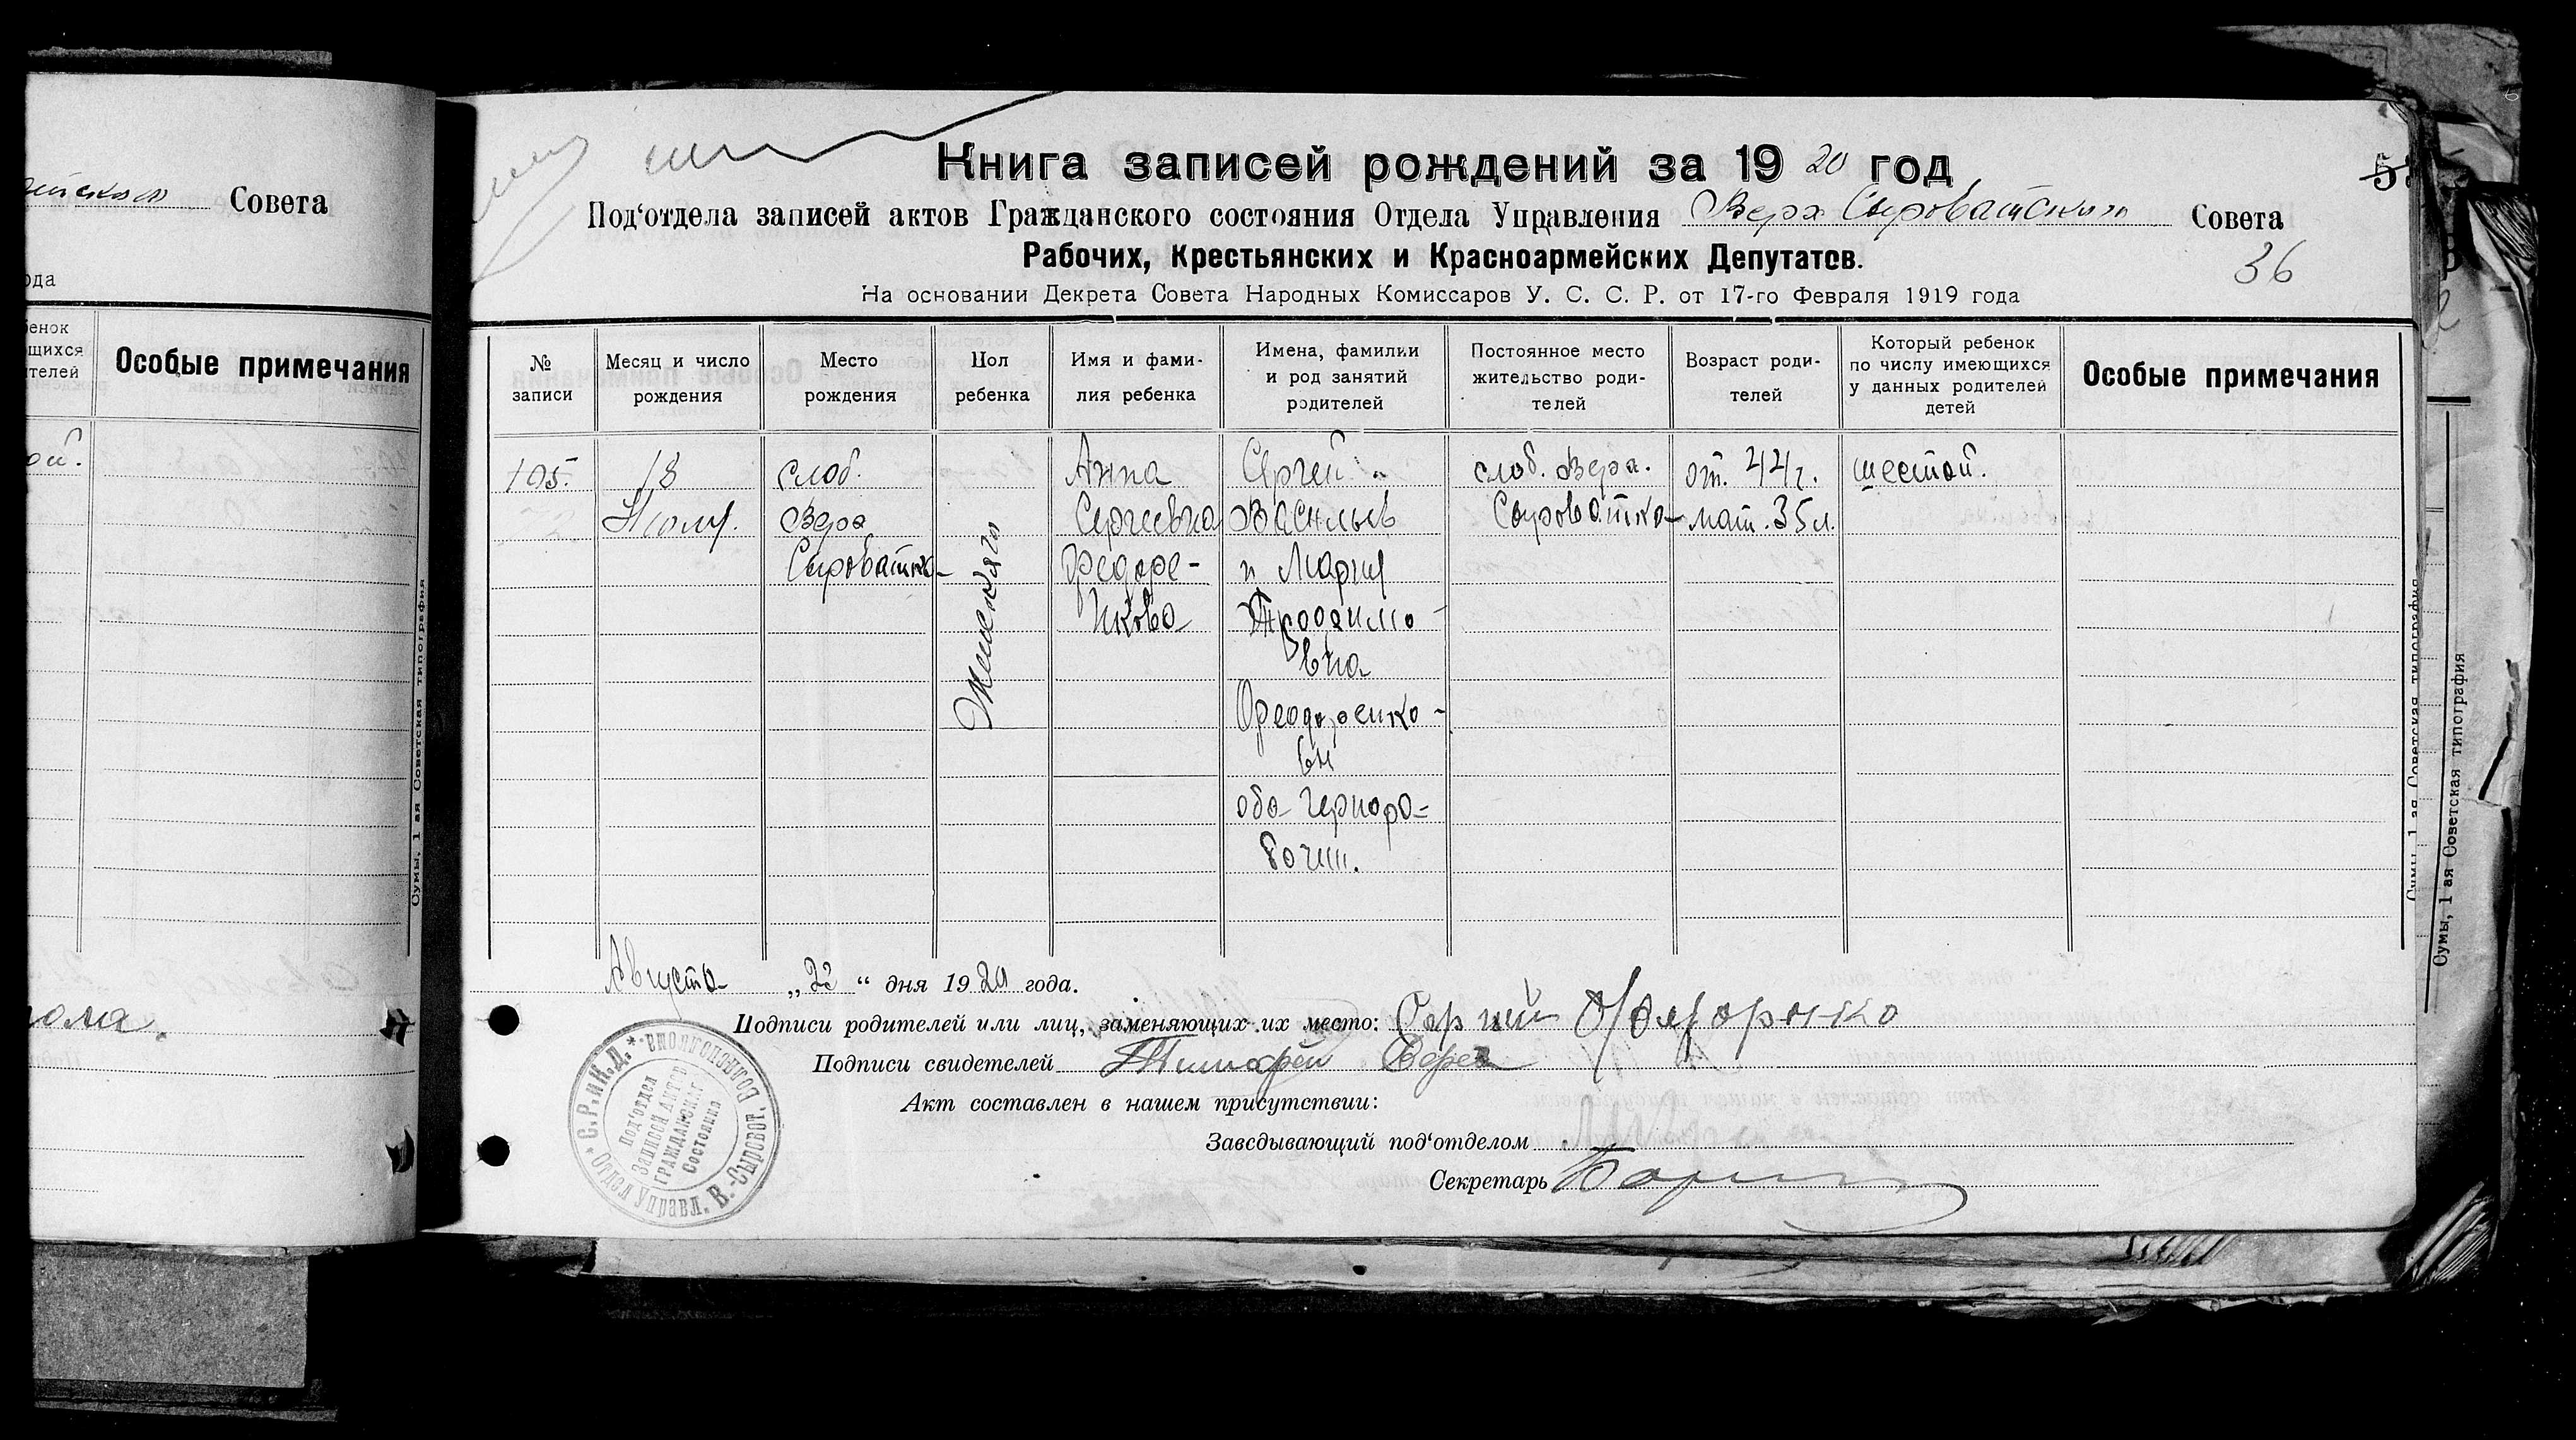 Совета
ода
енок
щихся
телей
Особые примечания
ой.
Сумы, 1 ая Советская типография
Книга записей рождений за 19 20 год
Под‘отдела записей актов Гражданского состояния Отдела Управления Верх Сыроватским Совета
Рабочих, Крестьянских и Красноармейских Депутатов.
36
На основании Декрета Совета Народных Комиссаров У. С. С. Р. от 17-го Февраля 1919 года
№
записи
Месяц и число
рождения
Место
рождения
Пол
ребенка
Имя и фами-
лия ребенка
Имена, фамилии
и род занятий
родителей
Постоянное место
жительство роди-
телей
Возраст роди-
телей
Который ребенок
по числу имеющихся
у данных родителей
детей
Особые примечания
105.
18
Июля.
слоб.
Верх
Сыроватка
Женскаго
Анна
Сергеевна
Федоре-
нкова
Сергей
Васильев
и Мария
Трофимо-
вна
Феодоренко-
вы
оба черноро-
бочии.
слоб. Верх.
Сыроватка
от. 44 г.
мат. 35 л.
шестой.
Августа „22“ дня 1920 года.
Подписи родителей или лиц, заменяющих их место: Сергий Федоренко
Подписи свидетелей Тимофей
Акт составлен в нашем присутствии:
Заведывающий под‘отделом
Секретарь
* С.Р.и К.Д. * Отдел Управл. В.-Сыроват. Волисполкома
Под‘отдел
Записей Актов
Гражданскаг
Состояния
Сумы, 1 ая Советская типография
Сумы, 1 ая Советская типография